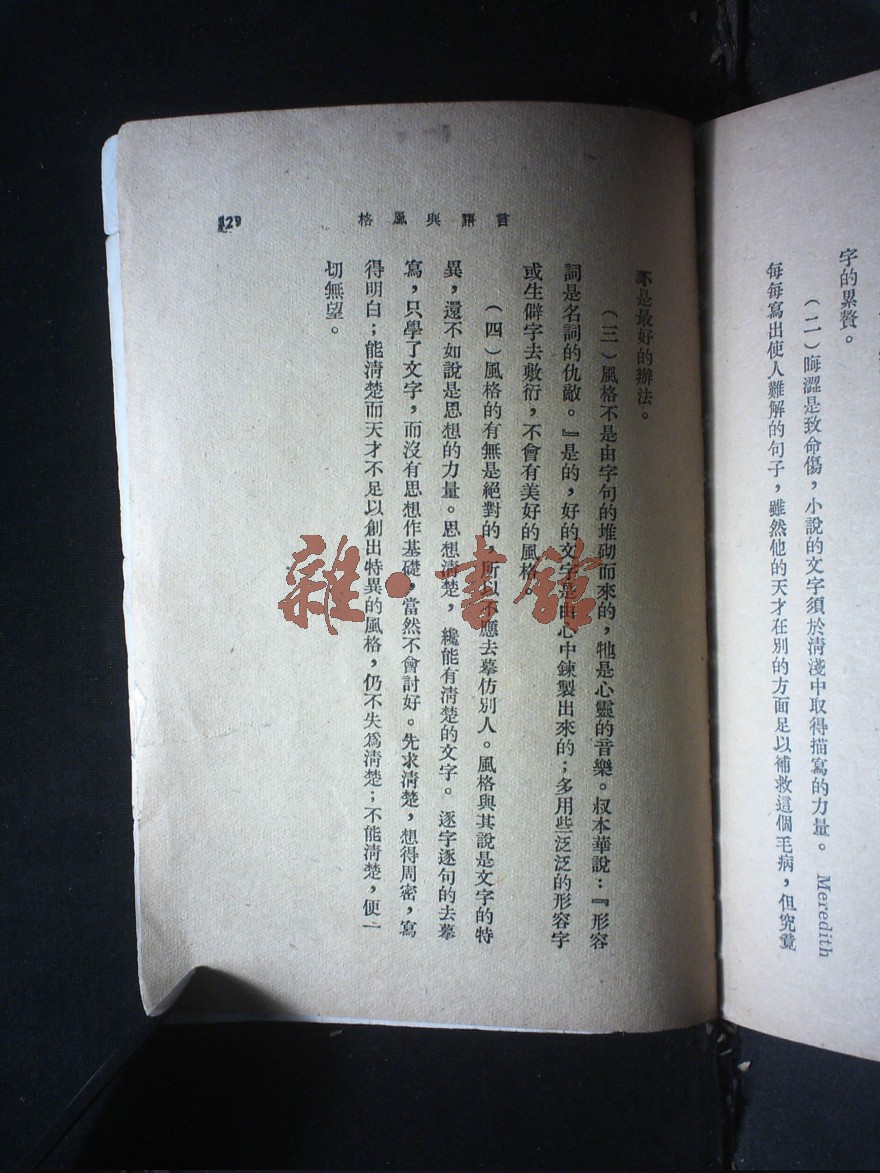 字的累贅。
（二）晦澀是致命傷，小說的文字須於清淺中取得描寫的力量。Meredith
每每寫出使人難解的句子，雖然他的天才在別的方面足以補救這個毛病，但究竟
言語與風格
129
不是最好的辦法。
（三）風格不是由字句的堆砌而來的，牠是心靈的音樂。叔本華說：『形容
詞是名詞的仇敵。』是的，好的文字是由心中鍊製出來的；多用些泛泛的形容字
或生僻字去敷衍，不會有美好的風格。
（四）風格的有無是絕對的，所以不應去摹仿別人。風格與其說是文字的特
異，還不如說是思想的力量。思想清楚，纔能有清楚的文字。逐字逐句的去摹
寫，只學了文字，而沒有思想作基礎，當然不會討好。先求清楚，想得周密，寫
得明白；能清楚而天才不足以創出特異的風格，仍不失爲清楚；不能清楚，便一
切無望。
雜·書館